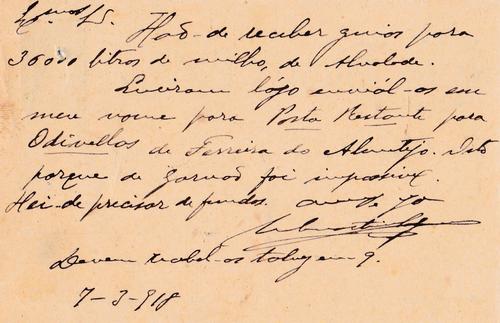 Exmos Srs.
Hão-de receber guias para
36000 litros de milho, de Alvalade.
logo enviál-os em
meu nome para Posta Restante para
Odivellas de Ferreira do Alemtejo. Isto
porque de foi
Hei-de precisar de fundos.
Devem recebel-os em 9.
7-3-918